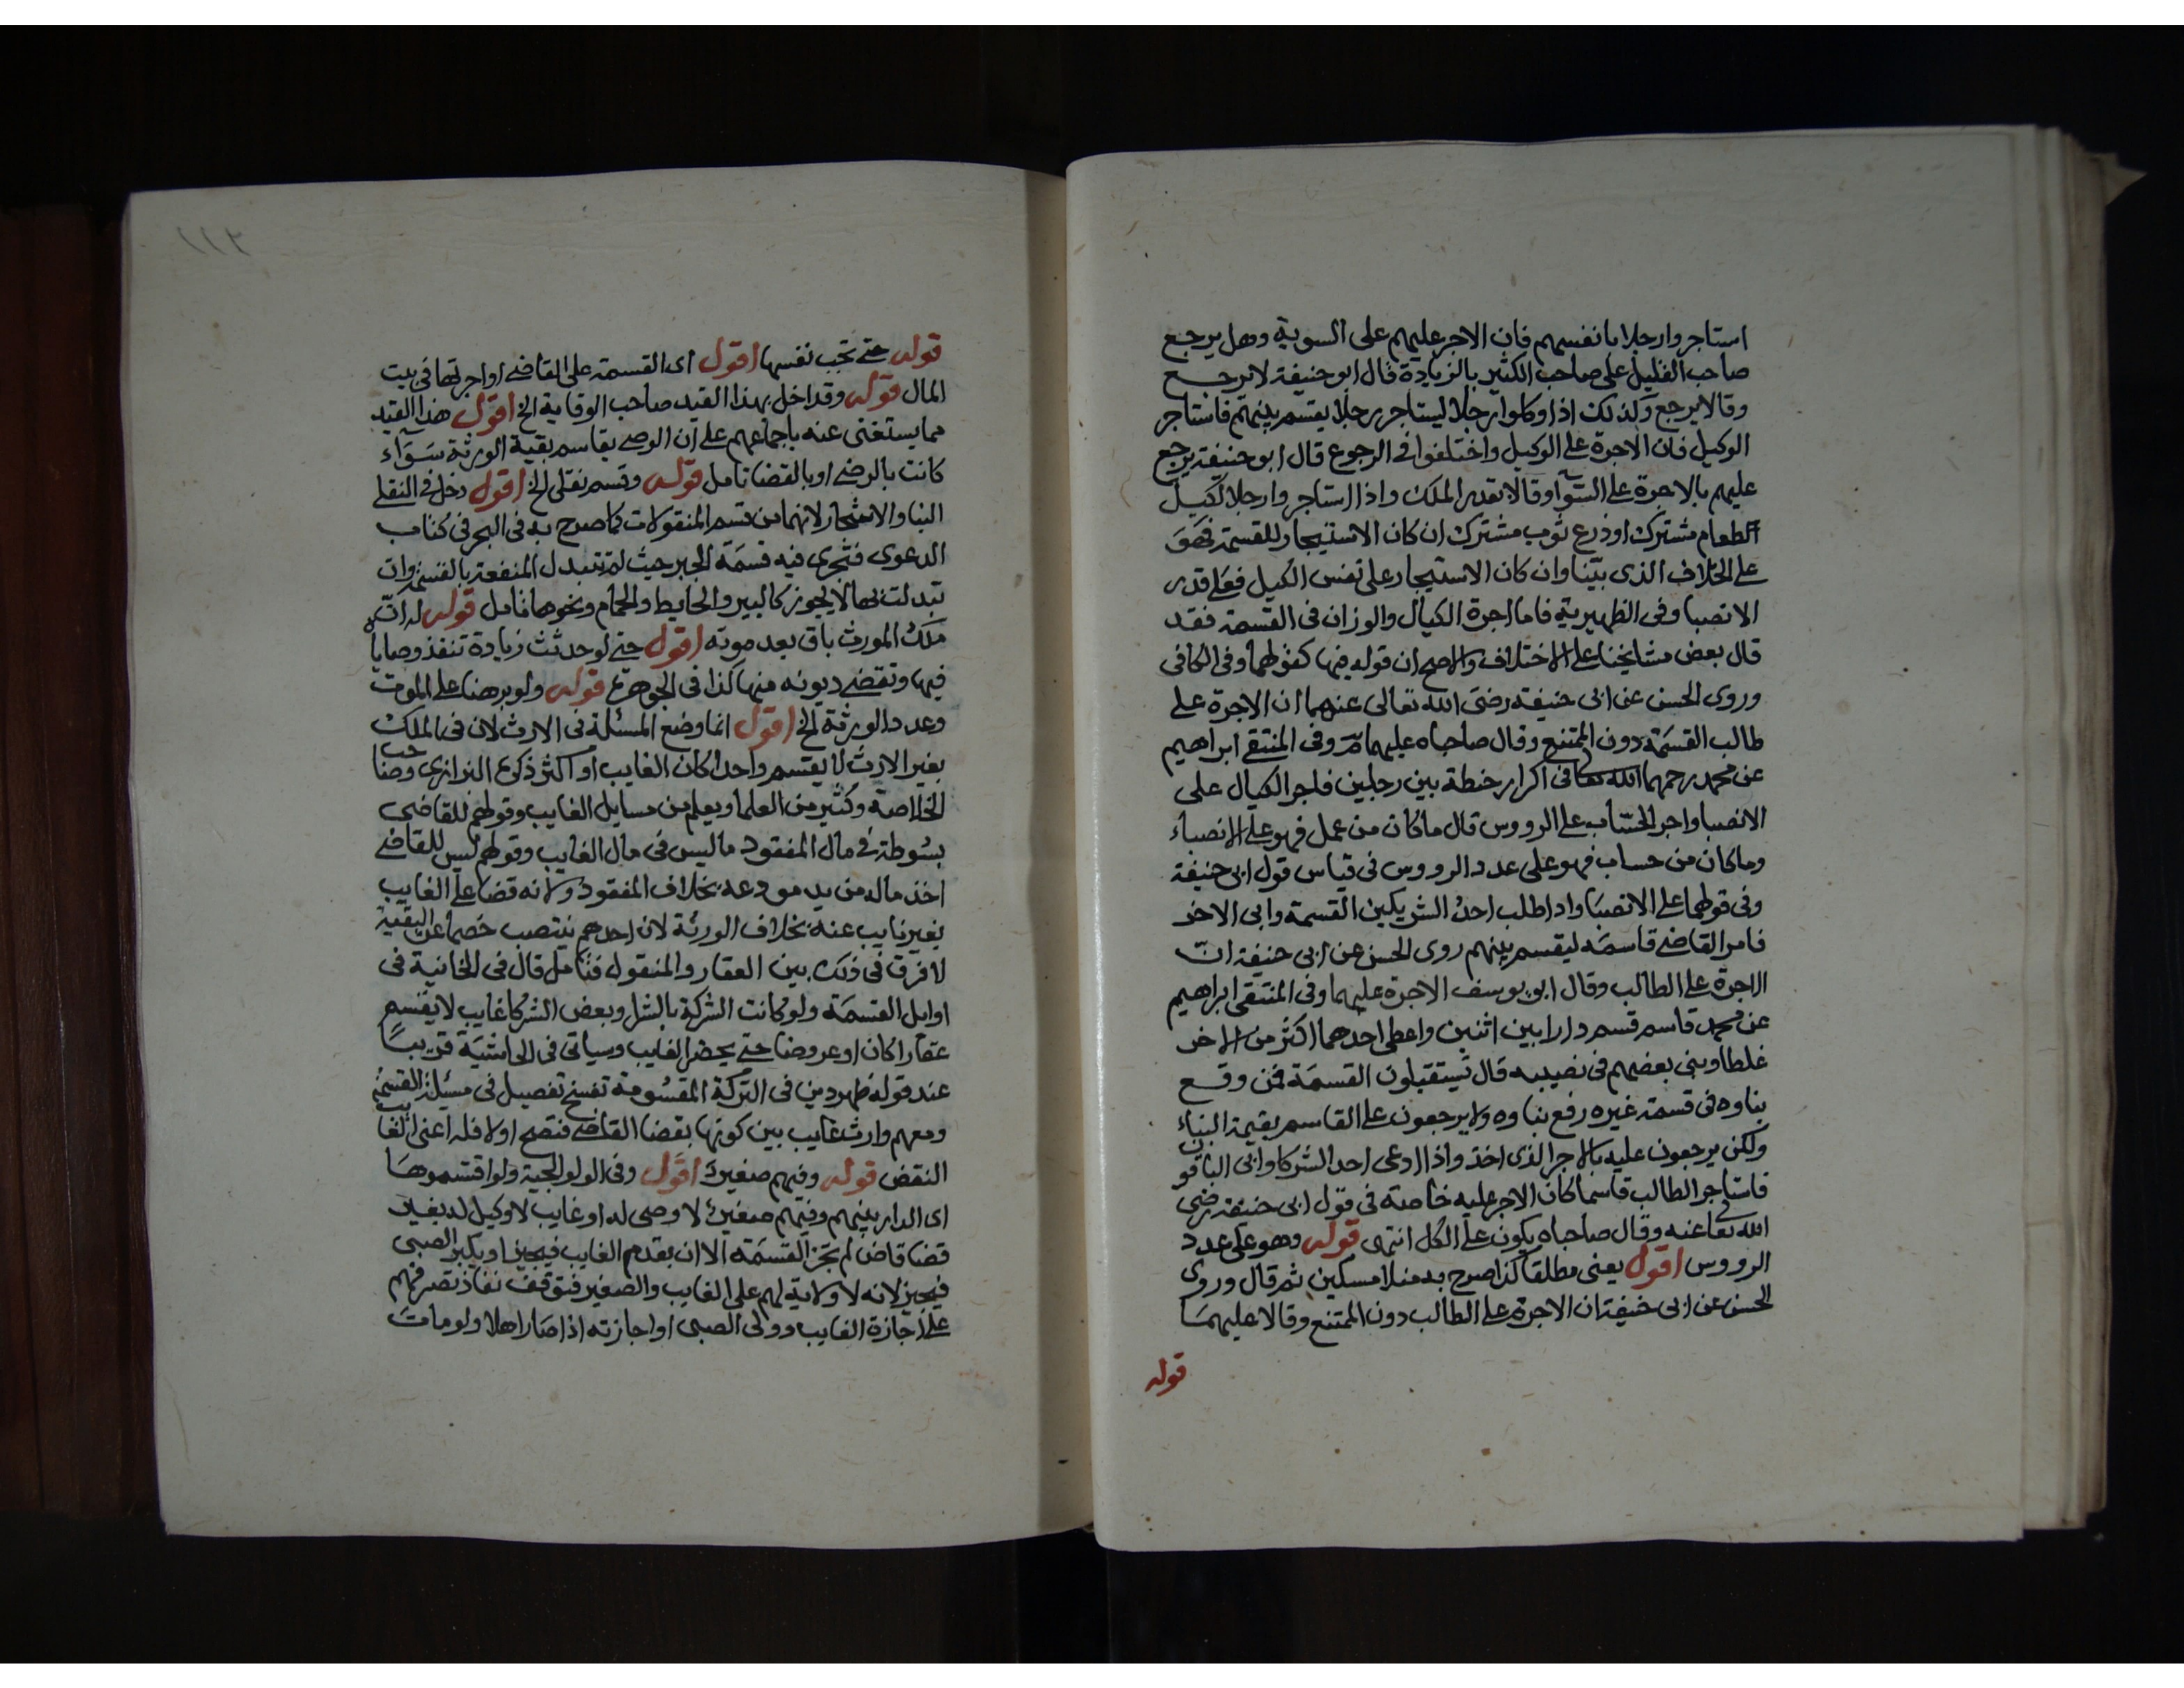 استاجروا رجلا بانفسهم فان الاجر عليهم على السوية وهل يرجع
صاحب القليل على صاحب الكثير بالزيادة قال ابو حنيفة لا يرجع
وقالا يرجع وكذلك اذا وكلوا رجلا ليستاجر رجلا يقسم بينهم فاستاجر
الوكيل فان الاجرة على الوكيل واختلفوا في الرجوع قال ابو حنيفة يرجع
عليهم بالاجرة على السوآ وقالا بقدر الملك واذا استاجروا رجلا لكيل
الطعام مشترك او ذرع ثوب مشترك ان كان الاستيجار للقسمة فهو
على الخلاف الذي بيّنا وان كان الاستيجار على نفس الكيل فعلى قدر
الانصبا وفي الظهيرية فاما اجرة الكيال والوزان في القسمة فقد
قال بعض مشايخنا على الاختلاف والاصح ان قوله فيها كقولهما وفي الكافي
وروى الحسن عن ابي حنيفة رضي الله تعالى عنهما ان الاجرة على
طالب القسمة دون الممتنع وقال صاحباه عليهما مّر وفي المنتقى ابراهيم
عن محمد رحمهما الله تعالى في اكرار حنطة بين رجلين فاجر الكيال على
الانصبا واجر الحسّاب على الرووس قال ما كان من عمل فهو على الانصباء
وما كان من حساب فهو على عدد الرووس في قياس قول ابي حنيفة
وفي قولهما على الانصبا واذا طلب احد الشريكين القسمة وابى الاخر
فامر القاضي قاسمه ليقسم بينهم روى الحسن عن ابي حنيفة انّ
الاجرة على الطالب وقال ابو يوسف الاجرة عليهما وفي المنتقى ابراهيم
عن محمد قاسم قسم دارا بين اثنين واعطى احدهما اكثر من الاخر
غلطا وبنى بعضهم في نصيبه قال يستقبلون القسمة فمن وقع
بناوه في قسمة غيره رفع بناوه ولا يرجعون على القاسم بقيمة البناء
ولكن يرجعون عليه بالاجر الذي اخذ واذا ادعى احد الشركا وابى الباقون
فاستاجر الطالب قاسما كان الاجر عليه خاصة في قول ابي حنيفة رضي
الله تعالى عنه وقال صاحباه يكون على الكل انتهى قوله وهو على عدد
الرووس اقول يعني مطلقا كذا صرح به منلا مسكين ثم قال وروى
الحسن عن ابي حنيفة ان الاجرة على الطالب دون الممتنع وقالا عليهما
قوله
١١٢
قوله حتى تجب نفسها اقول اى القسمة على القاضي او اجرتها في بيت
المال قوله وقد اخل بهذا القيد صاحب الوقاية الخ اقول هذا القيد
مما يستغنى عنه باجماعهم على ان الوصي يقاسم بقية الورثة سوآء
كانت بالرضى او بالقضا تامل قوله وقسم نقلي الخ اقول دخل في النقلي
البنا والاشجار لانهما من قسم المنقولات كما صرح به في البحر في كتاب
الدعوى فتجرى فيه قسمة الجبر حيث لم تتبدل المنفعة بالقسمة وان
تبدلت بها لا يجوز كالبير والحايط والحمام ونحوها تامل قوله له انّ
ملك المورث باق بعد موته اقول حتى لو حدثت زيادة تنفذ وصاياه
فيها وتقضى ديونه منها كذا في الجوهرة قوله ولو برهنا على الموت
وعدد الورثة الخ اقول انما وضع المسئلة في الارث لان في الملك
بغير الارث لا يقسم واحدا كان الغايب او اكثر ذكره البزازي وصاحب
الخلاصة وكثير من العلما ويعلم من مسايل الغايب وقولهم للقاضي
بسوطة في مال المفقود ما ليس في مال الغايب وقولهم ليس للقاضي
اخذ ماله من يد مودعه بخلاف المفقود ولانه قضا على الغايب
بغير نايب عنه بخلاف الورثة لان احدهم ينتصب خصما عن البقية
لا فرق في ذلك بين العقار والمنقول فتامل قال في الخانية في
اوايل القسمة ولو كانت الشركة بالشرا وبعض الشركا غايب لا يقسم
عقارا كان او عروضا حتى يحضر الغايب وسياتي في الحاشية قريبًا
عند قوله ظهر دين في التركة المقسومة تفسخ تفصيل في مسئلة القسمة
ومعهم وارث غايب بين كونها بقضا القاضي فتصح او لا فله اعني الغايب
النقض قوله وفيهم صغير اقول وفي الولوالجية ولو اقتسموها
اى الدار بينهم وفيهم صغير لا وصي له او غايب لا وكيل له بغير
قضا قاض لم تجز القسمة الا ان يقدم الغايب فيجيز او يكبر الصبى
فيجيز لانه لا ولاية لهم على الغايب والصغير فتوقف نفاذ تصرفهم
على اجازة الغايب وولى الصبى او اجازته اذا صار اهلا ولو مات